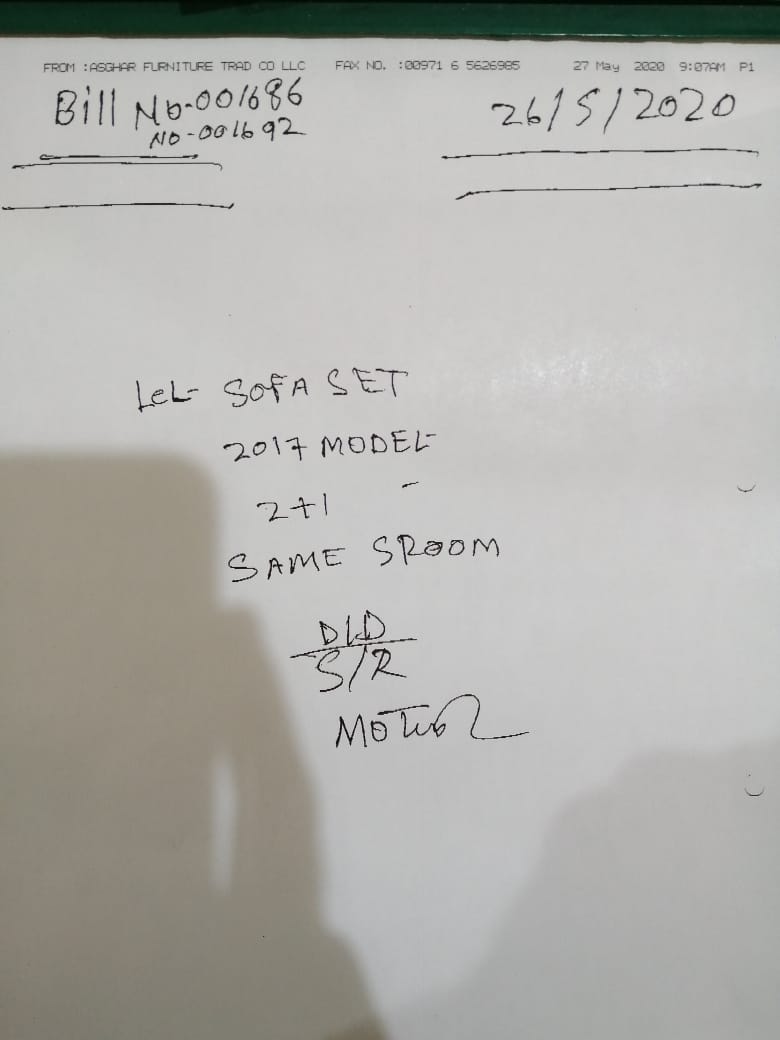 FROM :ASGHAR FURNITURE TRAD CO LLC FAX NO. :00971 6 5626985 27 May 2020 9:07AM P1
Bill No-001686 26/5/2020
NO-001692
LeL- SOFA SET
2017 MODEL-
2+1
SAME SROOM
DLD
S/R